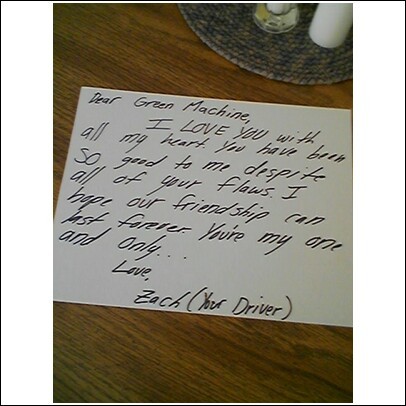 Dear Green Machine,
I LOVE YOU with
all my heart. You have been
so good to me despite
all of your flaws. I
hope our friendship can
last forever. You're my one
and only...
Love,
Zach (Your Driver)